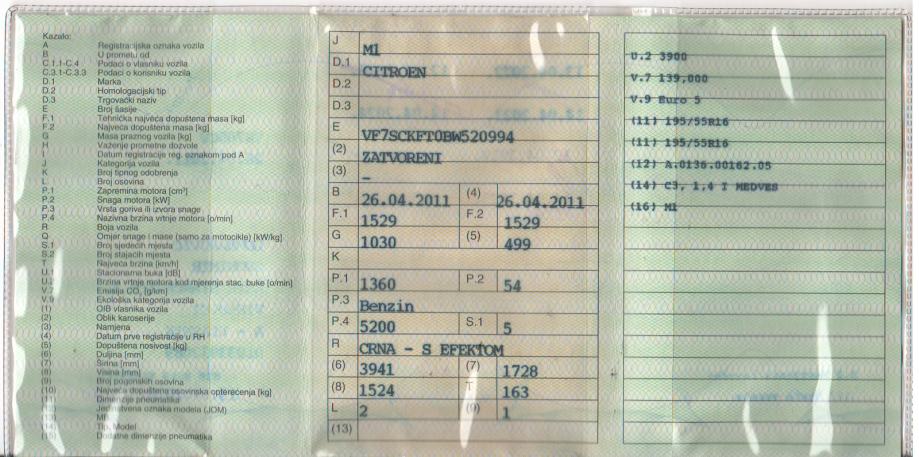 Kazalo:
A Registracijska oznaka vozila
B U prometu od
C.1.1-C.4 Podaci o vlasniku vozila
C.3.1-C.3.3 Podaci o korisniku vozila
D.1 Marka
D.2 Homologacijski tip
D.3 Trgovački naziv
E Broj šasije
F.1 Tehnička najveća dopuštena masa [kg]
F.2 Najveća dopuštena masa [kg]
G Masa praznog vozila [kg]
H Važenje prometne dozvole
I Datum registracije reg. oznakom pod A
J Kategorija vozila
K Broj tipnog odobrenja
L Broj osovina
P.1 Zapremina motora [cm³]
P.2 Snaga motora [kW]
P.3 Vrsta goriva ili izvora snage
P.4 Nazivna brzina vrtnje motora [o/min]
R Boja vozila
Q Omjer snage i mase (samo za motocikle) [kW/kg]
S.1 Broj sjedećih mjesta
S.2 Broj stajaćih mjesta
T Najveća brzina [km/h]
U.1 Stacionarna buka [dB]
U.2 Brzina vrtnje motora kod mjerenja stac. buke [o/min]
V.7 Emisija CO₂ [g/km]
V.9 Ekološka kategorija vozila
(1) OIB vlasnika vozila
(2) Oblik karoserije
(3) Namjena
(4) Datum prve registracije u RH
(5) Dopuštena nosivost [kg]
(6) Duljina [mm]
(7) Širina [mm]
(8) Visina [mm]
(9) Broj pogonskih osovina
(10) Najveća dopuštena osovinska opterećenja [kg]
(11) Dimenzije pneumatika
(12) Jedinstvena oznaka modela (JOM)
(13) MB
(14) Tip, Model
(15) Dodatne dimenzije pneumatika
J M1
D.1 CITROEN
D.2
D.3
E VF7SCKFT0BW520994
(2) ZATVORENI
(3) –
B 26.04.2011 (4) 26.04.2011
F.1 1529 F.2 1529
G 1030 (5) 499
K
P.1 1360 P.2 54
P.3 Benzin
P.4 5200 S.1 5
R CRNA - S EFEKTOM
(6) 3941 (7) 1728
(8) 1524 T 163
L 2 (9) 1
(13)
U.2 3900
V.7 139,000
V.9 Euro 5
(11) 195/55R16
(11) 195/55R16
(12) A.0136.00162.05
(14) C3, 1,4 I MEDVES
(16) M1